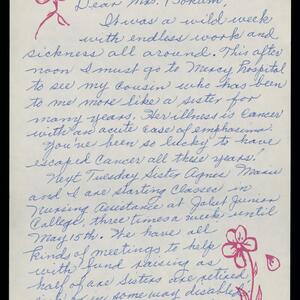 Dear Mrs. Bokum,
It was a wild week
with endless work and
sickness all around. This after
noon I must go to Mercy Hospital
to see my cousin who has been
to me more like a sister for
many years. Her illness is Cancer
with an acute case of emphasema.
"You've been so lucky to have
escaped Cancer all these years."
Next Tuesday Sister Agnes Marie
and I are starting Classes in
Nursing Assistance at Joliet Junior
College, three times a week until
May 15th. We have all
kinds of meetings to help
with fund raising as
half of are Sisters are retired
in some way disabled